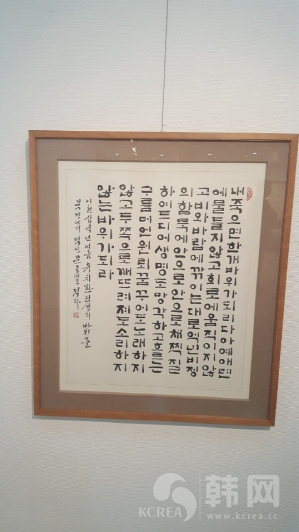 내죽으면한개바위가되리다아예애련
에물들지않고희로에움직이지않
고비와바람에깎이는대로억년비정
의함묵에안으로안으로채찍질
하여드디어생명도망각하고흐르는
구름머언원뢰꿈꾸어도노래하지
않고두쪽으로깨뜨려져도소리하지
않는바위가되리라
이천십육년 여름 유치환 선생의 바위를
쓰다
韩网
KCREA
www.kcrea.cc